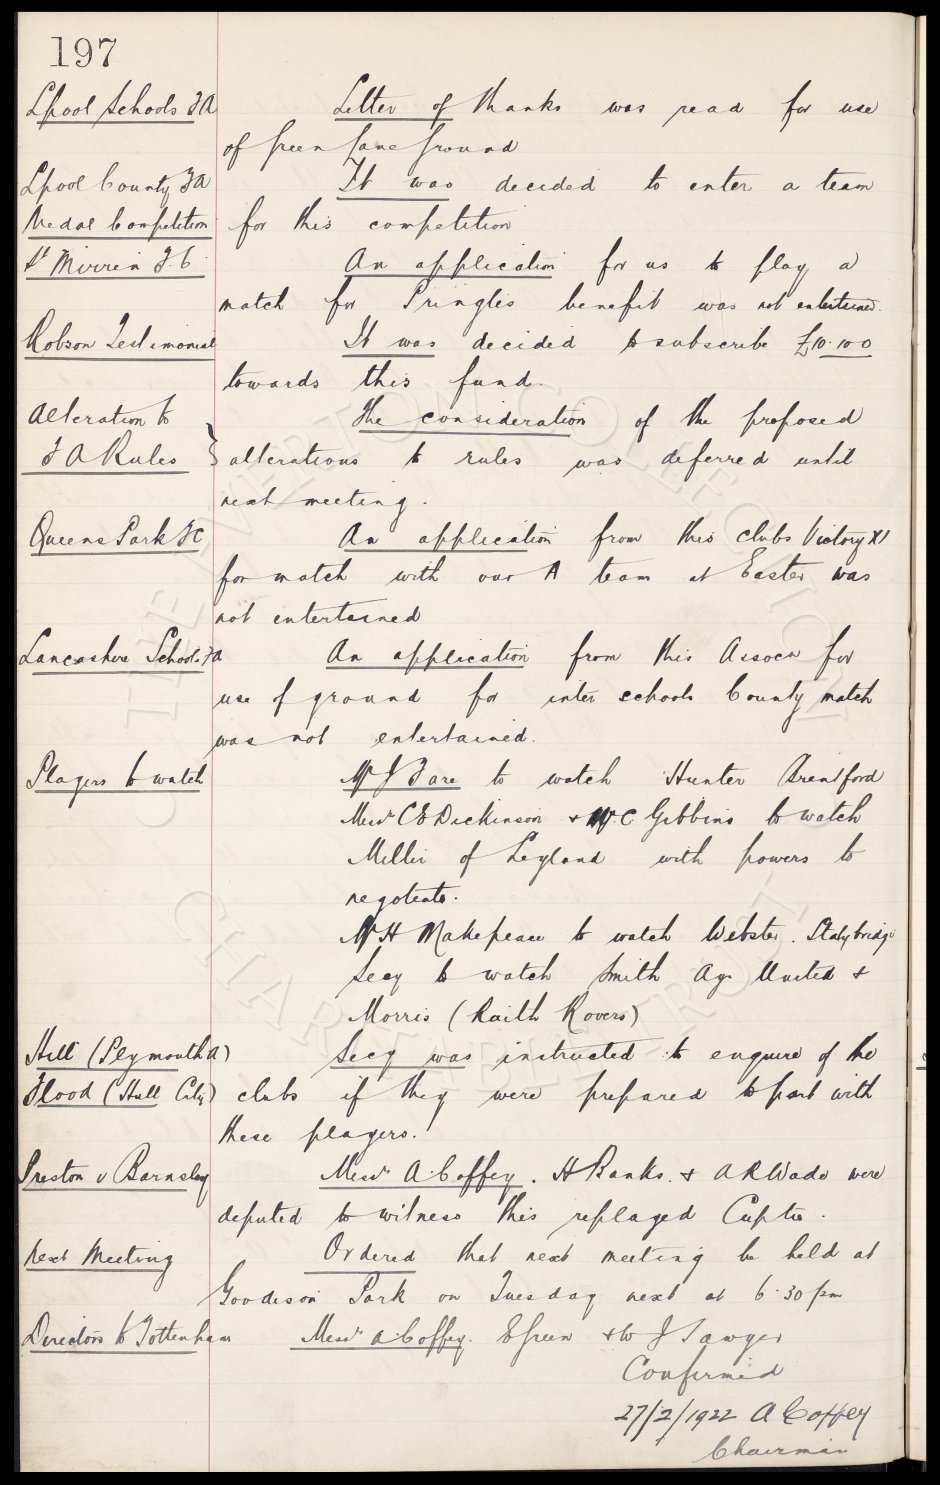 197
Lpool Schools FA Letter of thanks was read for use
of Green Lane Ground
Lpool County FA It was decided to enter a team
Medal Competition for this competition
St Mirren F.C. An application for us to play a
match for Pringles benefit was not entertained.
Robson Testimonial It was decided to subscribe £10.10.0
towards this fund.
Alteration to The consideration of the proposed
F A Rules } alterations to rules was deferred until
next meeting.
Queens Park FC An application from this clubs Victory XI
for match with our A team at Easter was
not entertained
Lancashire Schools FA An application from this Assocn for
use of ground for inter schools County match
was not entertained.
Players to watch Mr J Fare to watch Hunter Brentford
Messrs C E Dickinson & W.C. Gibbins to watch
Miller of Leyland with powers to
negotiate.
Mr H Makepeace to watch Webster. Stalybridge
Secy to watch Smith Ayr United &
Morris (Raith Rovers)
Hill (Plymouth A) Secy was instructed to enquire of the
Flood (Hull City) clubs if they were prepared to part with
these players.
Preston v Barnsley Messrs A. Coffey. H Banks. & A R Wade were
deputed to witness this replayed Cup tie.
Next Meeting Ordered that next meeting be held at
Goodison Park on Tuesday next at 6.30 pm
Directors to Tottenham Messrs A. Coffey. E Green & W J Sawyer
Confirmed
27/2/1922 A Coffey
Chairman
THE EVERTON COLLECTION
CHARITABLE TRUST